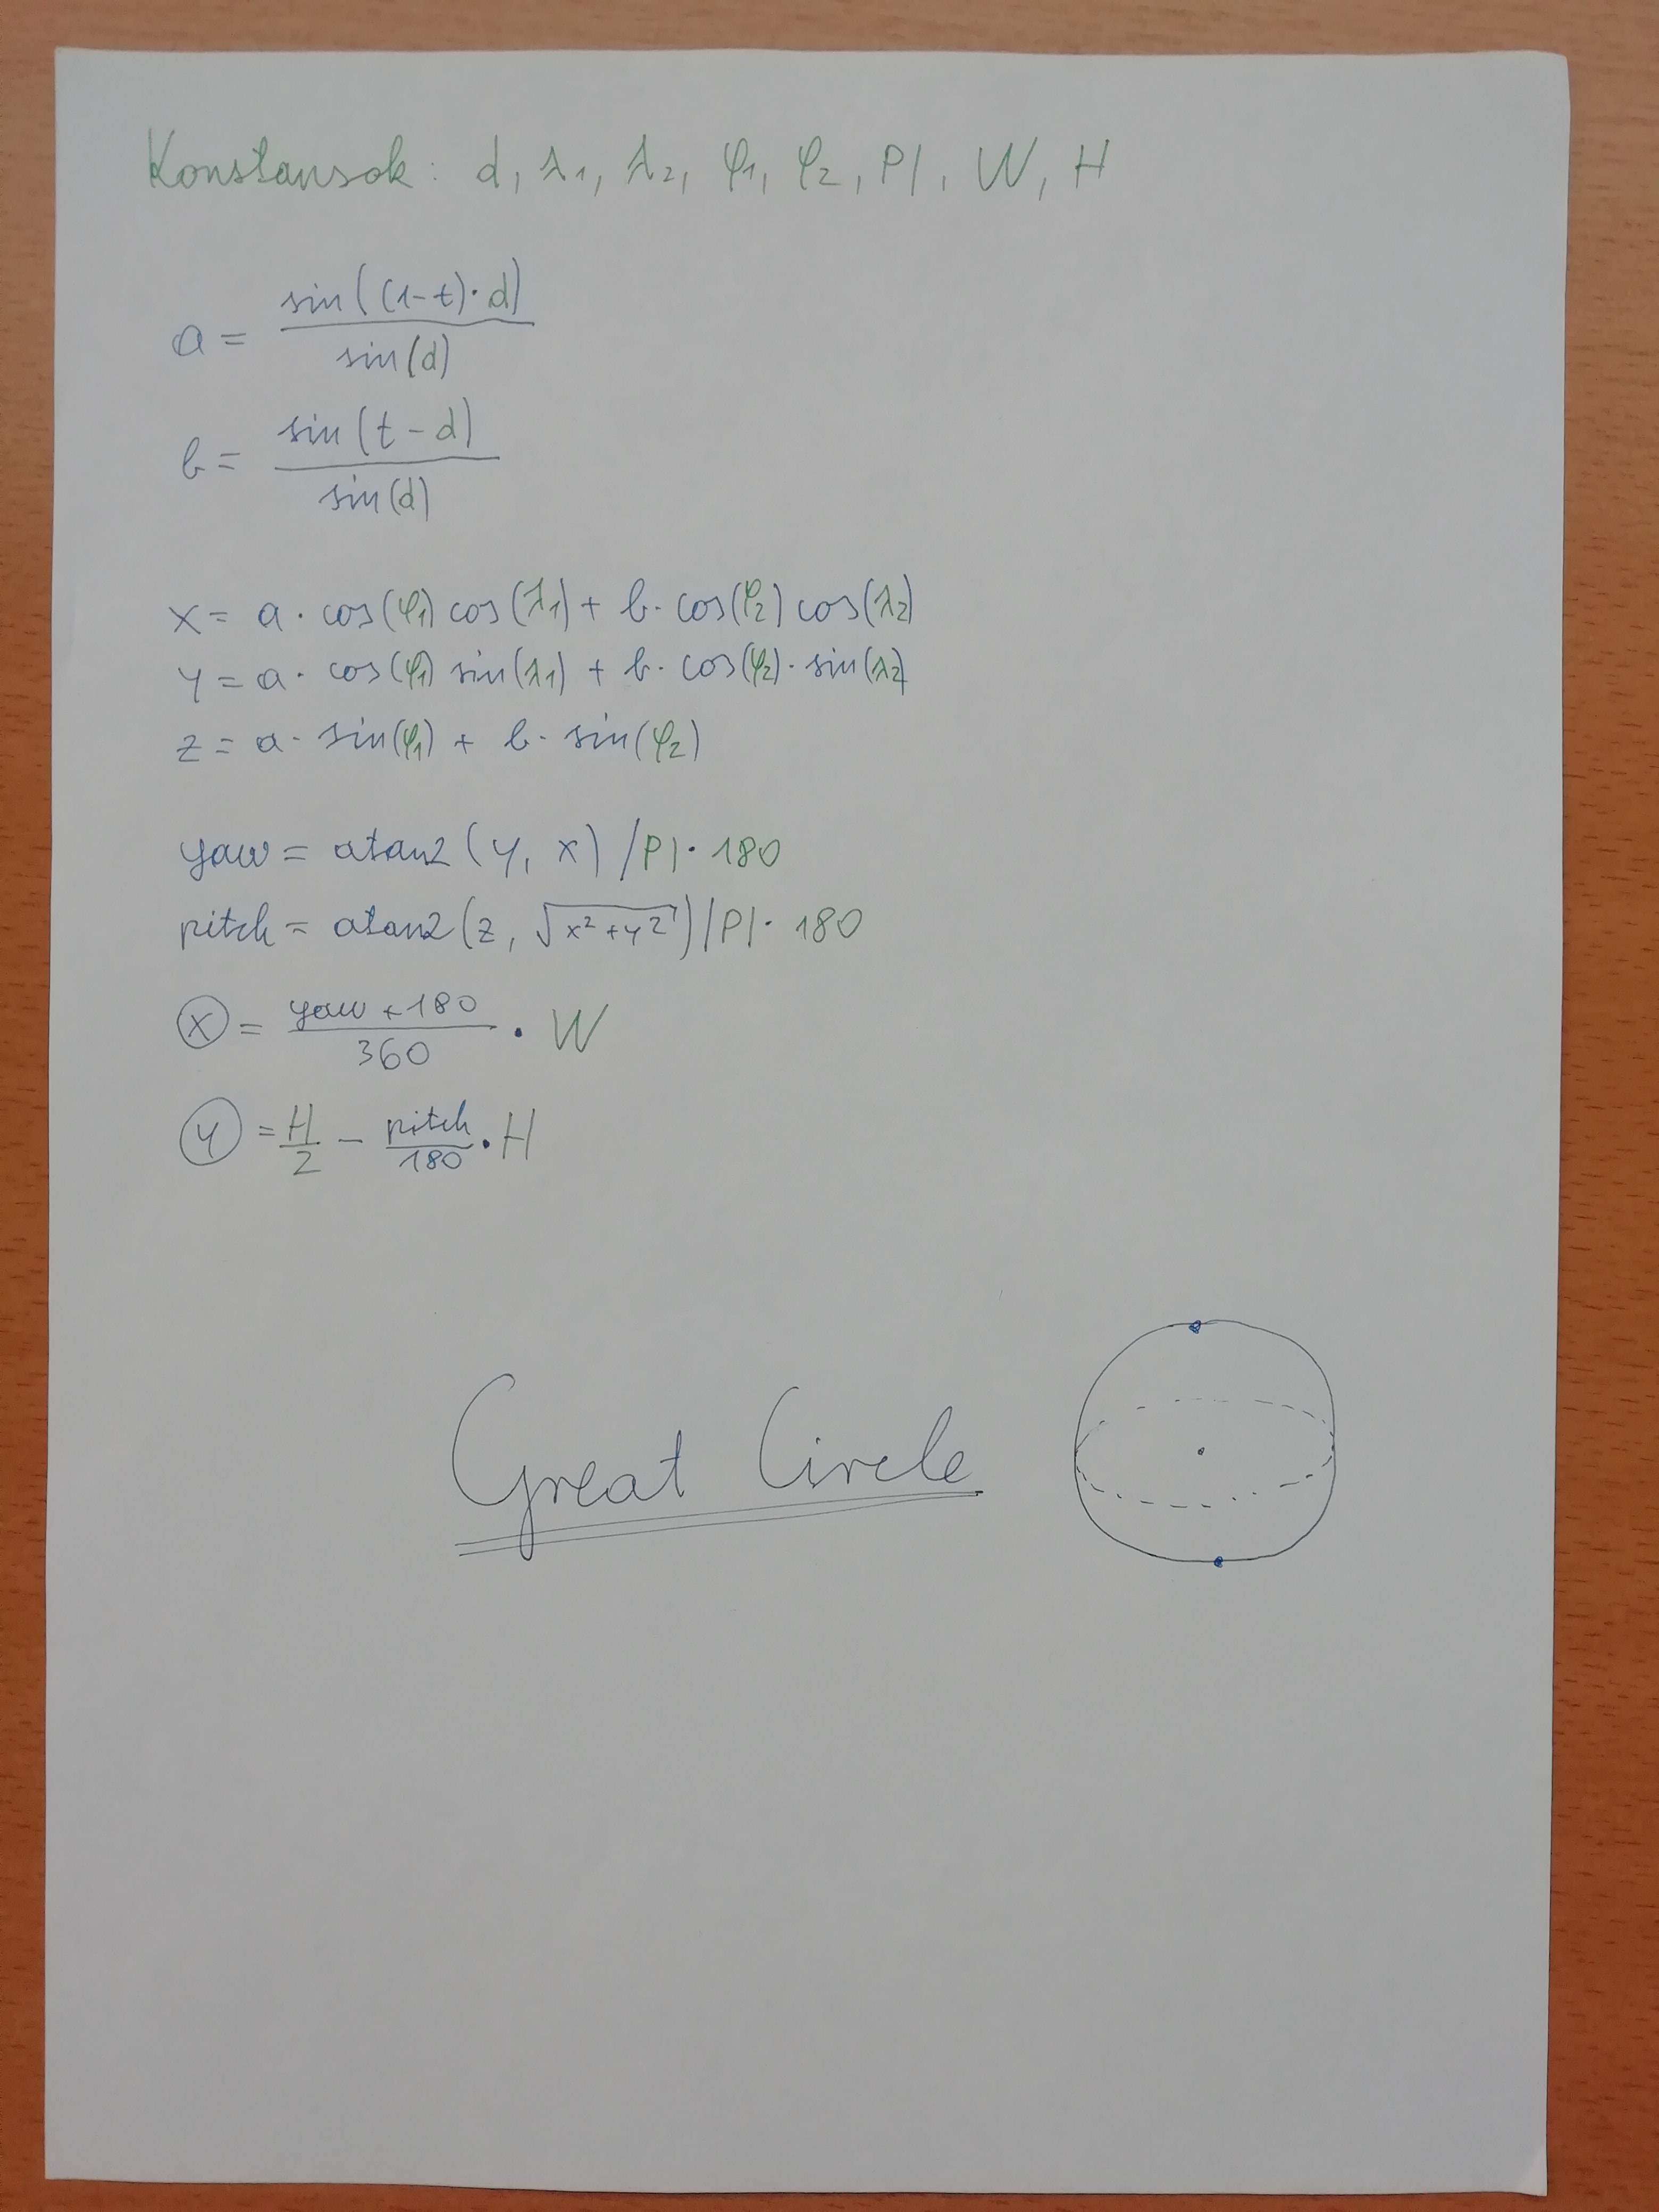 Konstansok: d, λ1, λ2, φ1, φ2, PI, W, H
a = sin((1-t)·d) / sin(d)
b = sin(t-d) / sin(d)
x = a · cos(φ1) cos(λ1) + b · cos(φ2) cos(λ2)
y = a · cos(φ1) sin(λ1) + b · cos(φ2) · sin(λ2)
z = a · sin(φ1) + b · sin(φ2)
yaw = atan2(y, x) / PI · 180
pitch = atan2(z, √(x²+y²)) / PI · 180
X = (yaw + 180) / 360 · W
Y = H/2 - pitch/180 · H
Great Circle